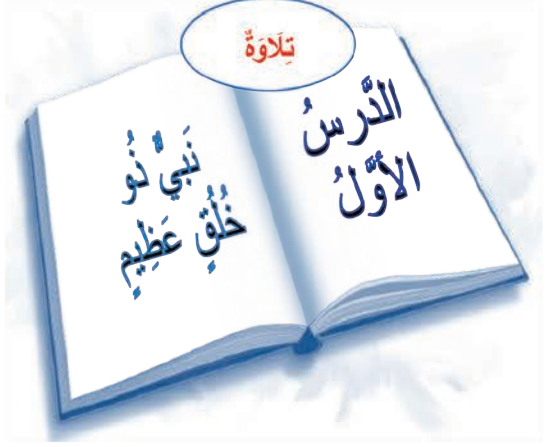 تِلَاوَةٌ
الدَّرسُ
الأوَّلُ
نَبيٌّ ذُو
خُلُقٍ عَظِيمٍ